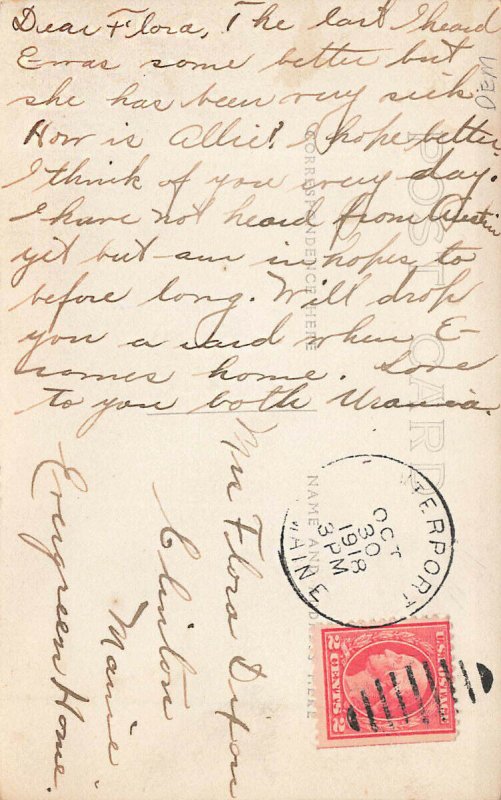 Dear Flora, The last I heard
E was some better but
she has been very sick
How is Allie? I hope better,
I think of you every day.
I have not heard from Austin
yet but am in hopes to
before long. Will drop
you a card when E-
comes home. Love
to you both Urania.
Wed
POST CARD
CORRESPONDENCE HERE
NAME AND ADDRESS HERE
Mrs Flora Dixon
Clinton
Maine
Evergreen Home.
TERPORT
OCT
30
3 PM
1918
MAINE
U.S. POSTAGE
2 CENTS 2